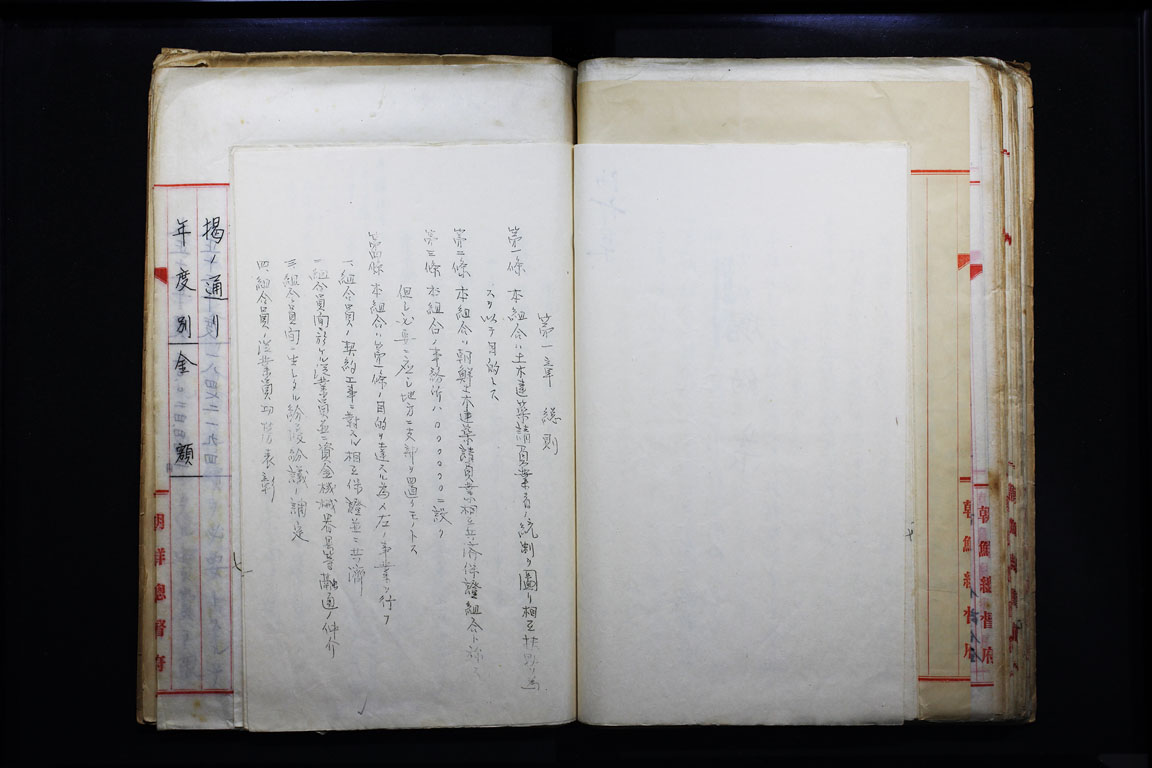 第一章 総則
第一條 本組合ハ土木建築請負業者ノ統制ヲ圖リ相互扶助ヲ為
スヲ以テ目的トス
第二條 本組合ハ朝鮮土木建築請負業相互共済保證組合ト称ス
第三條 本組合ノ事務所ハ〇〇〇〇〇ニ設ク
但し必要ニ応シ地方ニ支部ヲ置クモノトス
第四條 本組合ハ第一條ノ目的ヲ達スル為メ左ノ事業ヲ行フ
一、組合員ノ契約工事ニ對スル相互保證並ニ共濟
組合員間ニ於ケル従業員並ニ資金機械器具等融通ノ仲介
三 組合員間ニ生シタル紛擾紛議ノ調定
四 組合員ノ従業員 表彰
揭ノ通リ
年度別金額
朝鮮總督府
朝鮮總督府
朝鮮總督府